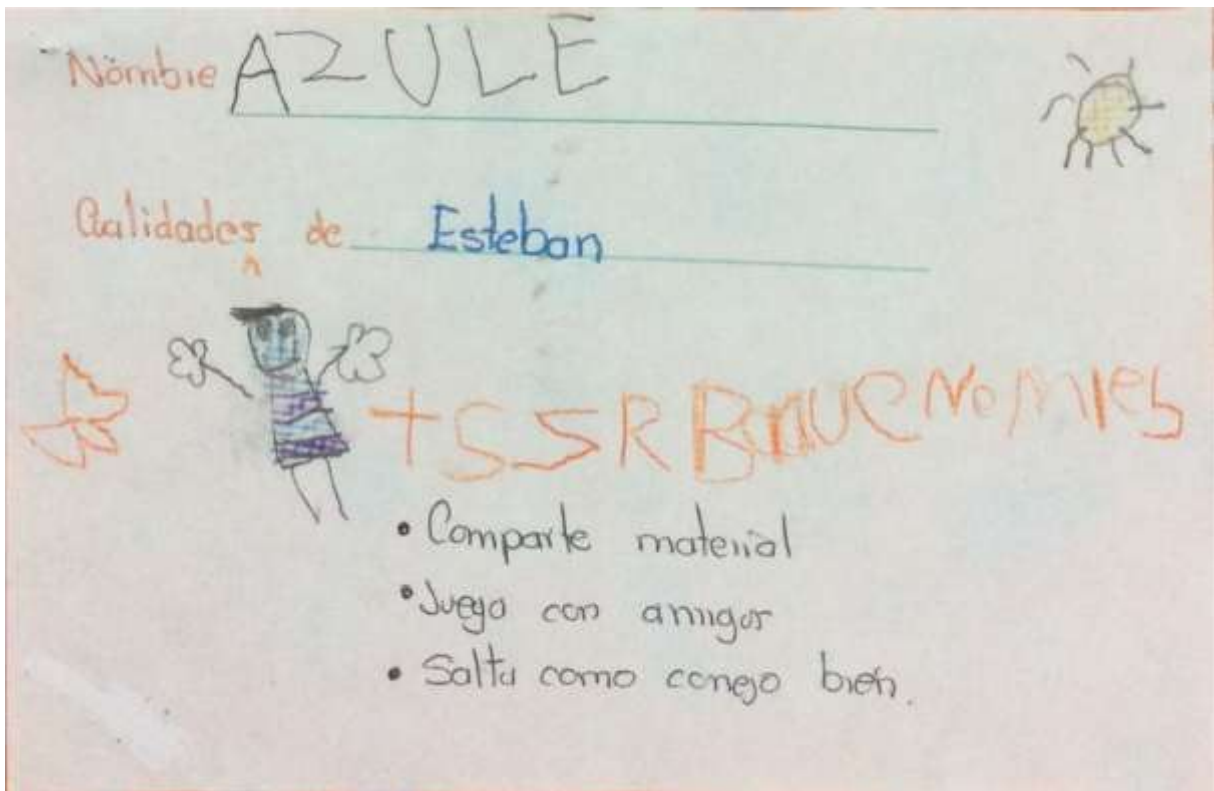 Nombre AZULE
Cualidades de Esteban
+SSR BnUeNoMies
• Comparte material
• Juega con amigos
• Salta como conejo bien.